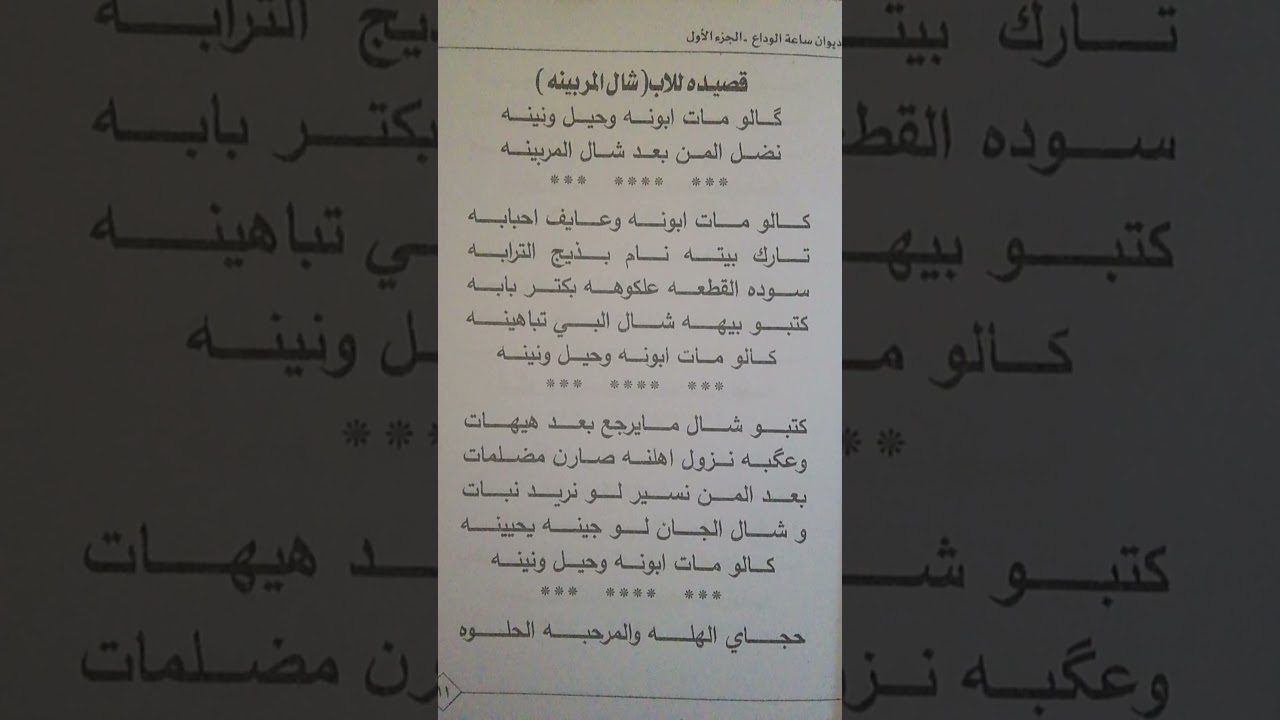 ديوان ساعة الوداع - الجزء الأول
قصيده للاب ( شال المربينه )
گالو مات ابونه وحيل ونينه
نضل المن بعد شال المربينه
*** **** ***
كالو مات ابونه وعايف احبابه
تارك بيته نام بذيج الترابه
سوده القطعه علكوهه بكتر بابه
كتبو بيهه شال البي تباهينه
كالو مات ابونه وحيل ونينه
*** **** ***
كتبو شال مايرجع بعد هيهات
وعگبه نزول اهلنه صارن مضلمات
بعد المن نسير لو نريد نبات
و شال الجان لو جينه يحيينه
كالو مات ابونه وحيل ونينه
*** **** ***
حجاي الهله والمرحبه الحلوه
١١